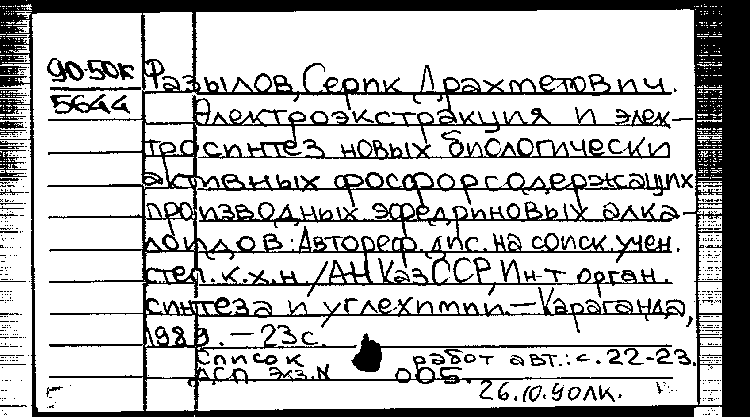 90-50к Фазылов, Серик Драхметович.
5644 Электроэкстракция и элек-
тросинтез новых биологически
активных фосфорсодержащих
производных эфедриновых алка-
лоидов: Автореф. дис. на соиск. учен.
степ. к.х.н. /АН КазССР, Ин-т орган.
синтеза и углехимии. — Караганда,
1989. — 23 с.
Список работ авт.: с. 22-23.
Дсп. экз. N 005.
26.10.90 ЛК.